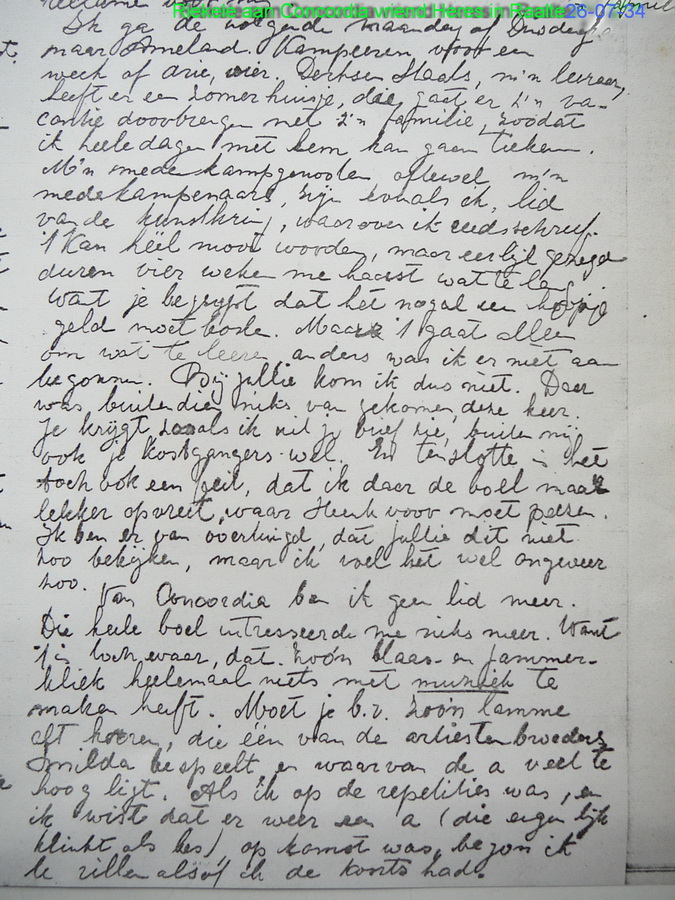 Ik ga de volgende maandag of Dinsdag
naar Ameland. Kampeeren voor een
week of drie, vier. Derksen Staats, m'n leeraar,
heeft er een zomerhuisje, die gaat er z'n va-
cantie doorbrengen met z'n familie, zoodat
ik heele dagen met hem kan gaan teekenen.
M'n medekampgenooten oftewel m'n
medekampenaars, zijn evenals ik, lid
van de kunstkring, waarover ik reeds schreef.
't Kan heel mooi worden, maar eerlijk gezegd
duren vier weken me haast wat te lang.
Want je begrijpt dat het nogal een hoopje
geld moet kosten. Maar 't gaat alleen
om wat te leeren, anders was ik er niet aan
begonnen. Bij jullie kom ik dus niet. Daar
was buitendien niks van gekomen, deze keer.
Je krijgt zooals ik uit je brief zie, buiten mij
ook je kostgangers wel. En tenslotte is het
toch ook een feit, dat ik daar de boel maar
lekker opvreet, waar Henk voor moet peezen.
Ik ben er van overtuigd, dat jullie dit niet
zoo bekijken, maar ik voel het wel ongeveer
zoo.
Van Concordia ben ik geen lid meer.
Die heele boel intresseerde me niks meer. Want
't is toch waar, dat zoo'n blaas- en jammer-
kliek heelemaal niets met muziek te
maken heeft. Moet je b.v. zoo'n lamme
alt hooren, die één van de artiesten broeders
Smilda bespeelt, en waarvan de a veel te
hoog ligt. Als ik op de repetities was, en
ik wist dat er weer een a (die eigenlijk
klinkt als bes) op komst was, begon ik
te rillen alsof ik de koorts had.